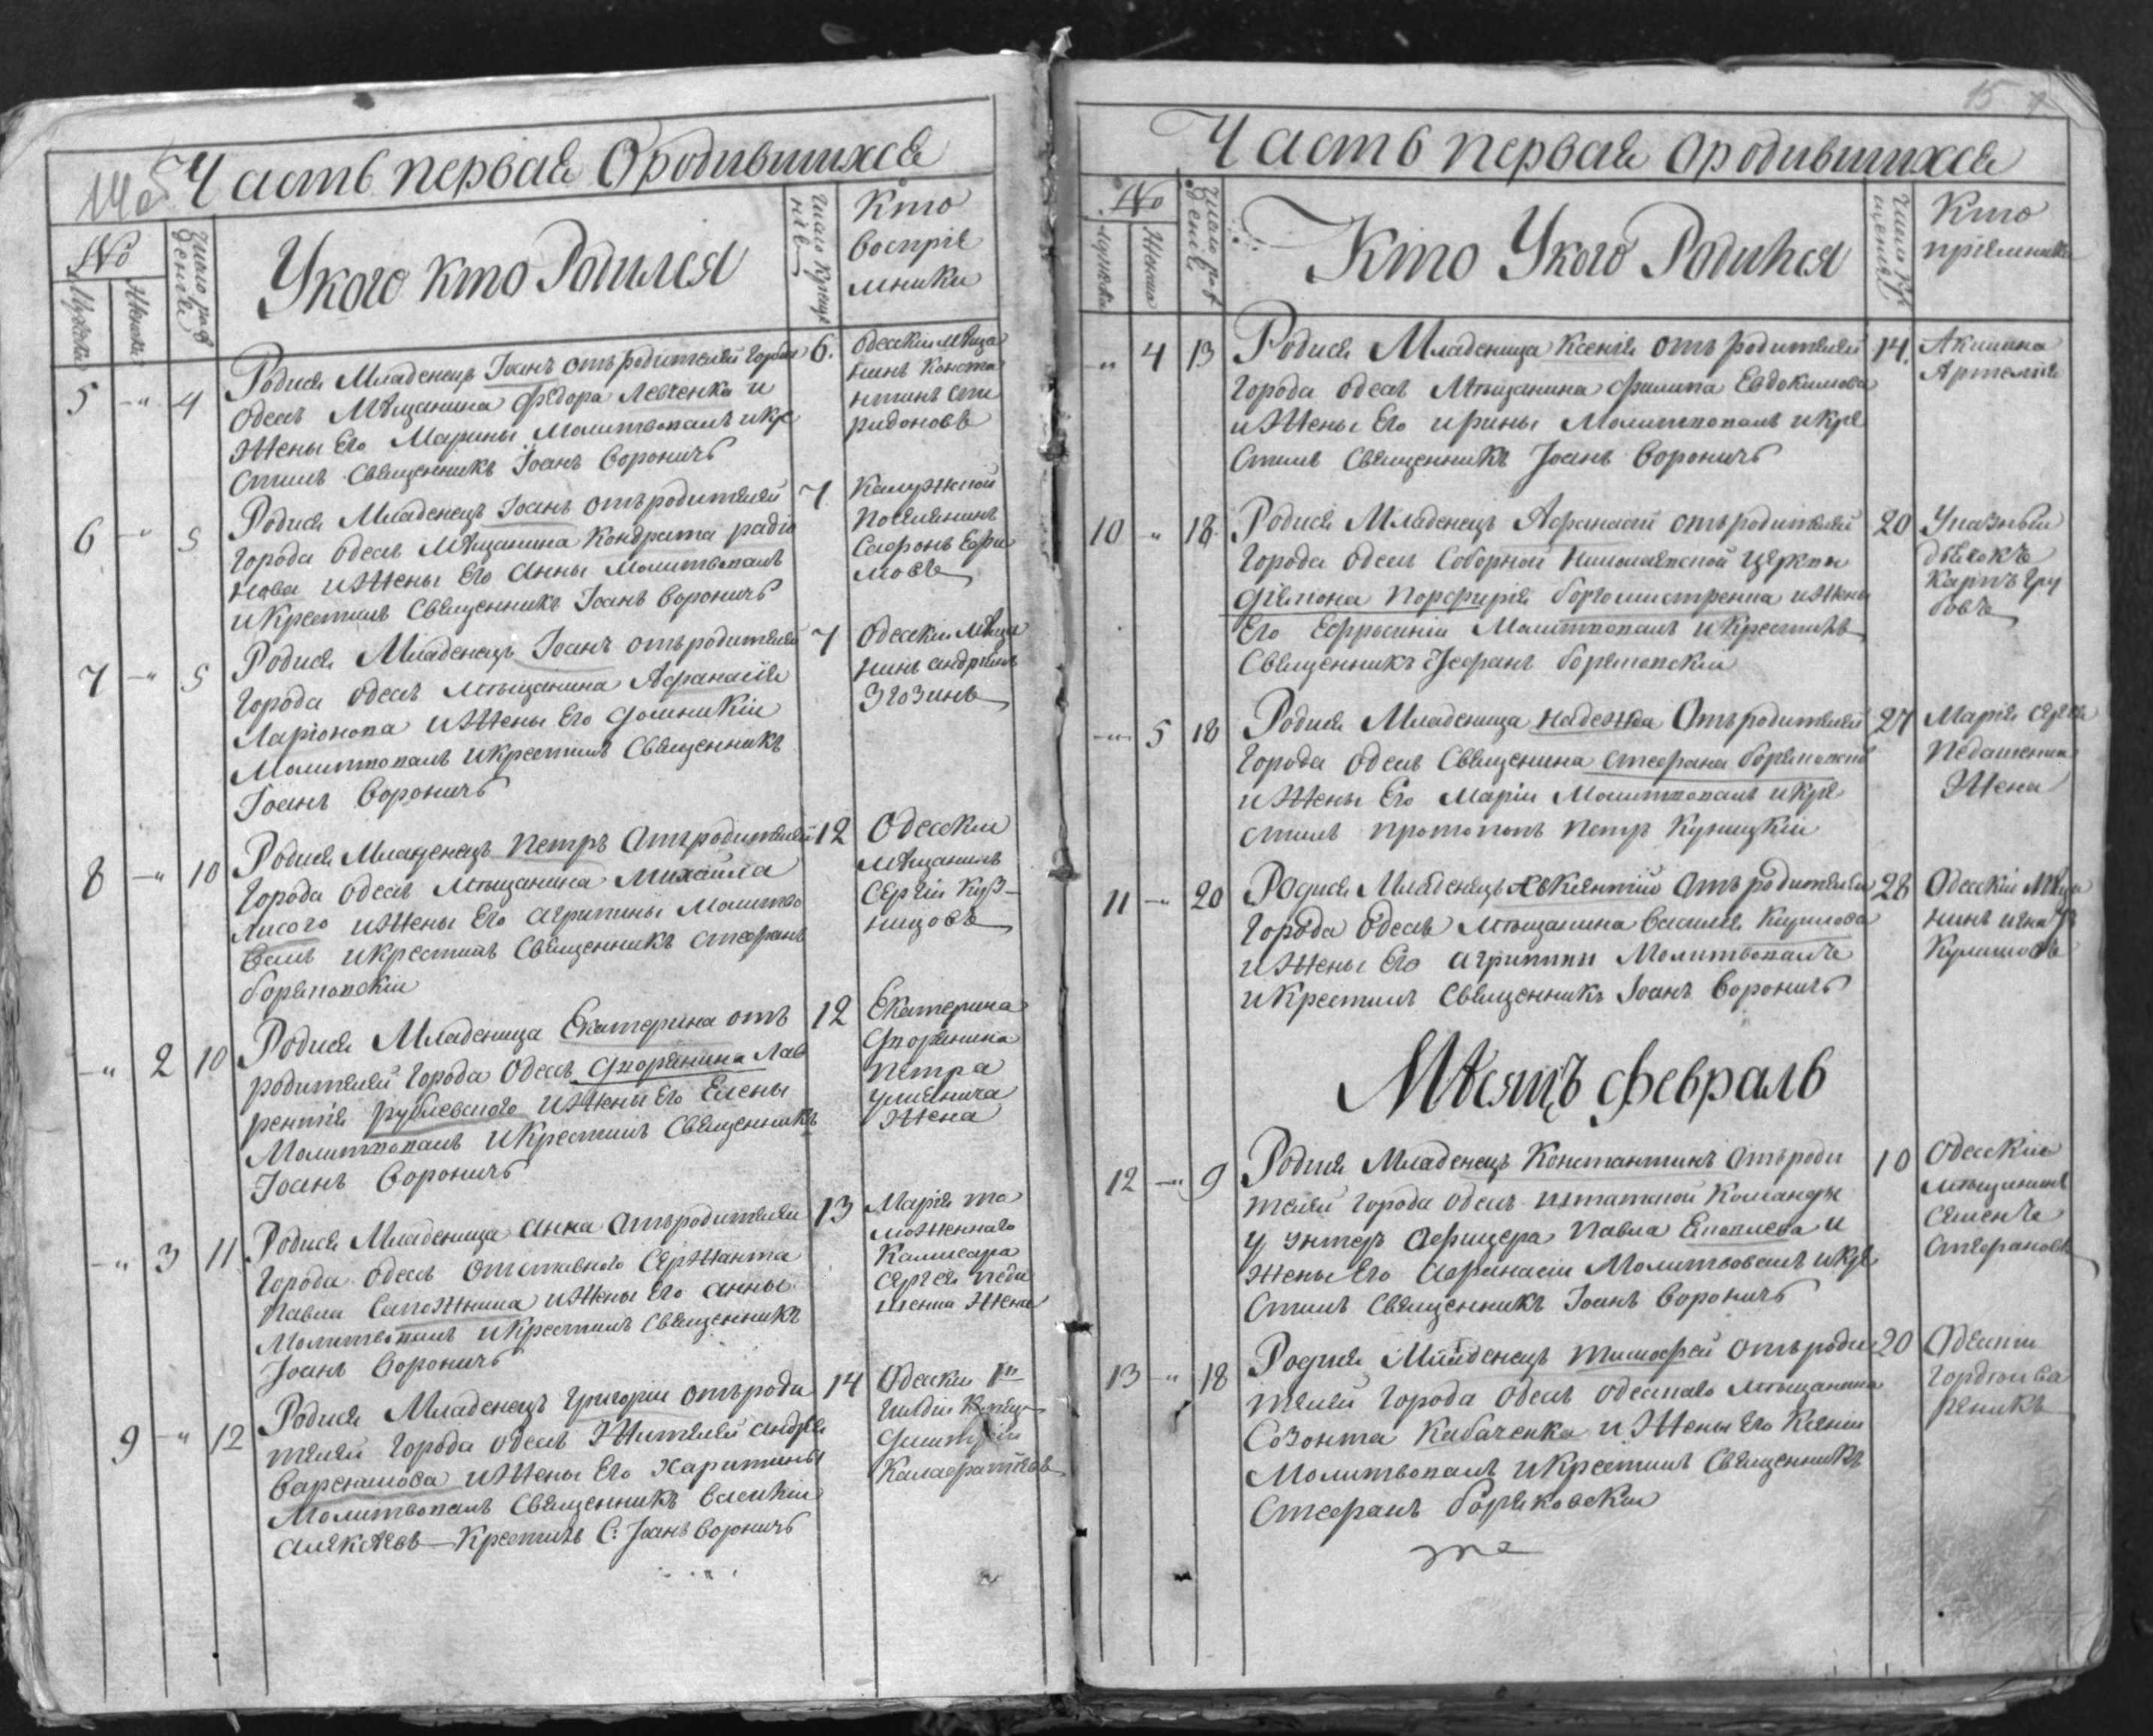 Часть первая О родившихся
№
Мужеска
Женска
Число рождения
У кого кто Родился
Число Крещения
Кто
восприе
мники
5 -" 4
Родися Младенецъ Іоанъ отъ родителей города
Одесъ Мѣщанина Федора Левченка и
Жены Его Марины Молитвовалъ и кре
стилъ Священникъ Іоанъ Вороничъ
6.
Одескіи мѣща
нинъ Конста
нтинъ Спи
ридоновъ
6 -" 5
Родися Младенецъ Іоанъ отъ родителей
города Одесъ Мѣщанина Кондрата радіо
нова и Жены Его Анны Молитвовалъ
и Крестилъ Священникъ Іоанъ Вороничъ
7
Калужской
Поселянинъ
Сафонъ Ефи
мовъ
7 -" 5
Родися Младенецъ Іоанъ отъ родителей
города Одесъ мѣщанина Афанасія
Ларіонова и Жены Его
Молитвовалъ и крестилъ Священникъ
Іоанъ Вороничъ
7
Одескіи Мѣща
нинъ андрѣянъ
Згозинъ
8 -" 10
Родися Младенецъ Петръ Отъ родителей
города Одесъ мѣщанина михаила
Лисого и Жены Его агрипины Молитво
валъ и крестилъ Священникъ Стефанъ
Боряковскіи
12
Одескіи
мѣщанинъ
Сергіи Куз-
ницовъ
-" 2 10
Родися Младеница Екатерина отъ
родителей города Одесъ дворянина Лав
рентія рублевского и Жены Его Елены
Молитвовалъ и Крестилъ Священникъ
Іоанъ Вороничъ
12
Екатерина
дворянина
Петра
Жена
-" 3 11
Родися Младеница Анна Отъ родителей
города Одесъ Отставного Сержанта
Павла Сапожника и Жены Его анны
Молитвовалъ и Крестилъ Священникъ
Іоанъ Вороничъ
13
Марія та
моженнаго
Камисара
Сергея Педа
шенка Жена
9 -" 12
Родися Младенецъ Григоріи отъ роди
телей города Одесъ Жителей андрея
Вареникова и Жены Его Харитины
Молитвовалъ Священникъ Василіи
Алексѣевъ — Крестилъ С: Іоанъ Вороничъ
14
Одескіи
гилдіи Купец
Димитріи
15
Часть первая О родившихся
№
Мужеска
Женска
Число рождения
Кто У кого Родился
Число крещения
Кто
приемники
-" 4 13
Родися Младеница Ксенія отъ родителей
города Одесъ Мѣщанина Филипа Евдокимова
и Жены Его ирины Молитвовалъ и кре
стилъ Священникъ Іоанъ Вороничъ
14.
Акилина
Артемія
10 " 18
Родися Младенецъ Афанасій отъ родителей
города Одесъ Соборной Николаевской Церкви
діякона Порфирія Боргомистренка и Жены
Его Ефросиніи Молитвовалъ и Крестилъ
Священникъ Стефанъ Боряковскіи
20
Указный
дьячокъ
Карпъ Гру
бовъ
-" 5 18
Родися Младеница надежда Отъ родителей
города Одесъ Священика Стефана Боряковско
и Жены Его Маріи Молитвовалъ и кре
стилъ протопопъ Петръ Куницкіи
27
Марія Сергея
Педашенка
Жена
11 -" 20
Родися Младенецъ Авксентій Отъ родителей
города Одесъ мѣщанина василія Курилова
и Жены Его агрипины Молитвовалъ
и Крестилъ Священникъ Іоанъ Вороничъ
28
Одескіи Мѣща
нинъ
Мѣсяцъ Февраль
12 -" 9
Родися Младенецъ Константинъ Отъ роди
телей города Одесъ штатской Команды
унтеръ Афицера Павла и
Жены Его Афанасіи Молитвовалъ и кре
стилъ Священникъ Іоанъ Вороничъ
10
Одескіи
мѣщанинъ
Семенъ
Стефановъ
13 -" 18
Родися Младенецъ тимофей Отъ роди
телей города Одесъ одескаго Мѣщанина
Созонта Кабаченка и Жены Его Ксеніи
Молитвовалъ и Крестилъ Священникъ
Стефанъ Боряковскіи
20